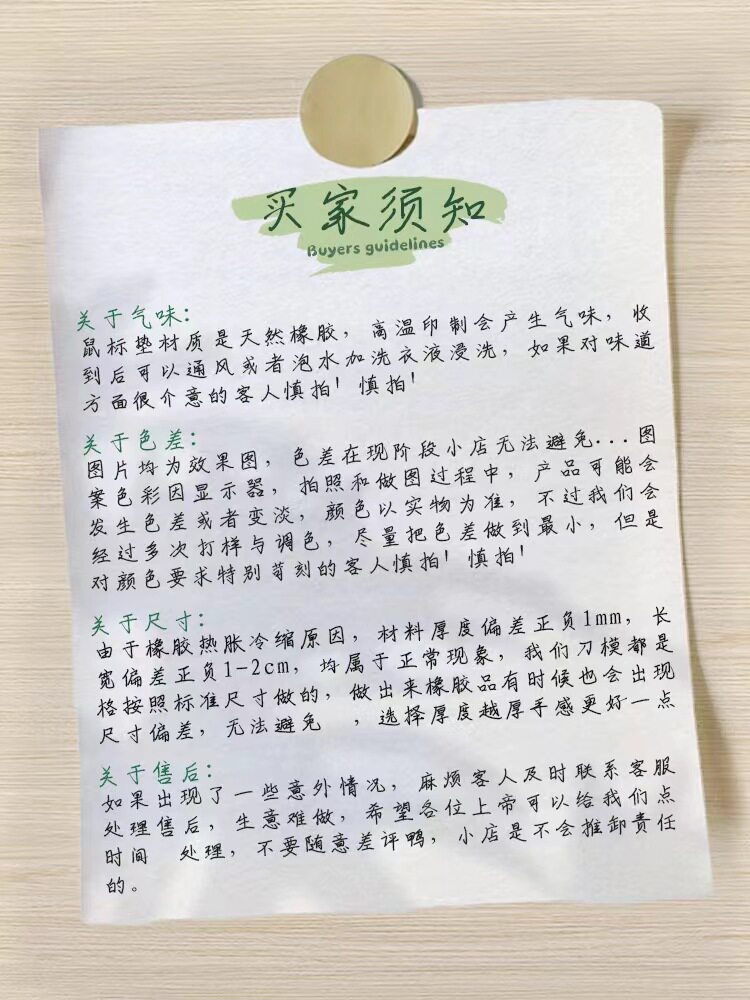 买家须知
Buyers guidelines
关于气味：
鼠标垫材质是天然橡胶，高温印制会产生气味，收
到后可以通风或者泡水加洗衣液浸洗，如果对味道
方面很介意的客人慎拍！慎拍！
关于色差：
图片均为效果图，色差在现阶段小店无法避免...图
案色彩因显示器，拍照和做图过程中，产品可能会
发生色差或者变淡，颜色以实物为准，不过我们会
经过多次打样与调色，尽量把色差做到最小，但是
对颜色要求特别苛刻的客人慎拍！慎拍！
关于尺寸：
由于橡胶热胀冷缩原因，材料厚度偏差正负1mm，长
宽偏差正负1-2cm，均属于正常现象，我们刀模都是
格按照标准尺寸做的，做出来橡胶品有时候也会出现
尺寸偏差，无法避免 ，选择厚度越厚手感更好一点
关于售后：
如果出现了一些意外情况，麻烦客人及时联系客服
处理售后，生意难做，希望各位上帝可以给我们点
时间 处理，不要随意差评鸭，小店是不会推卸责任
的。